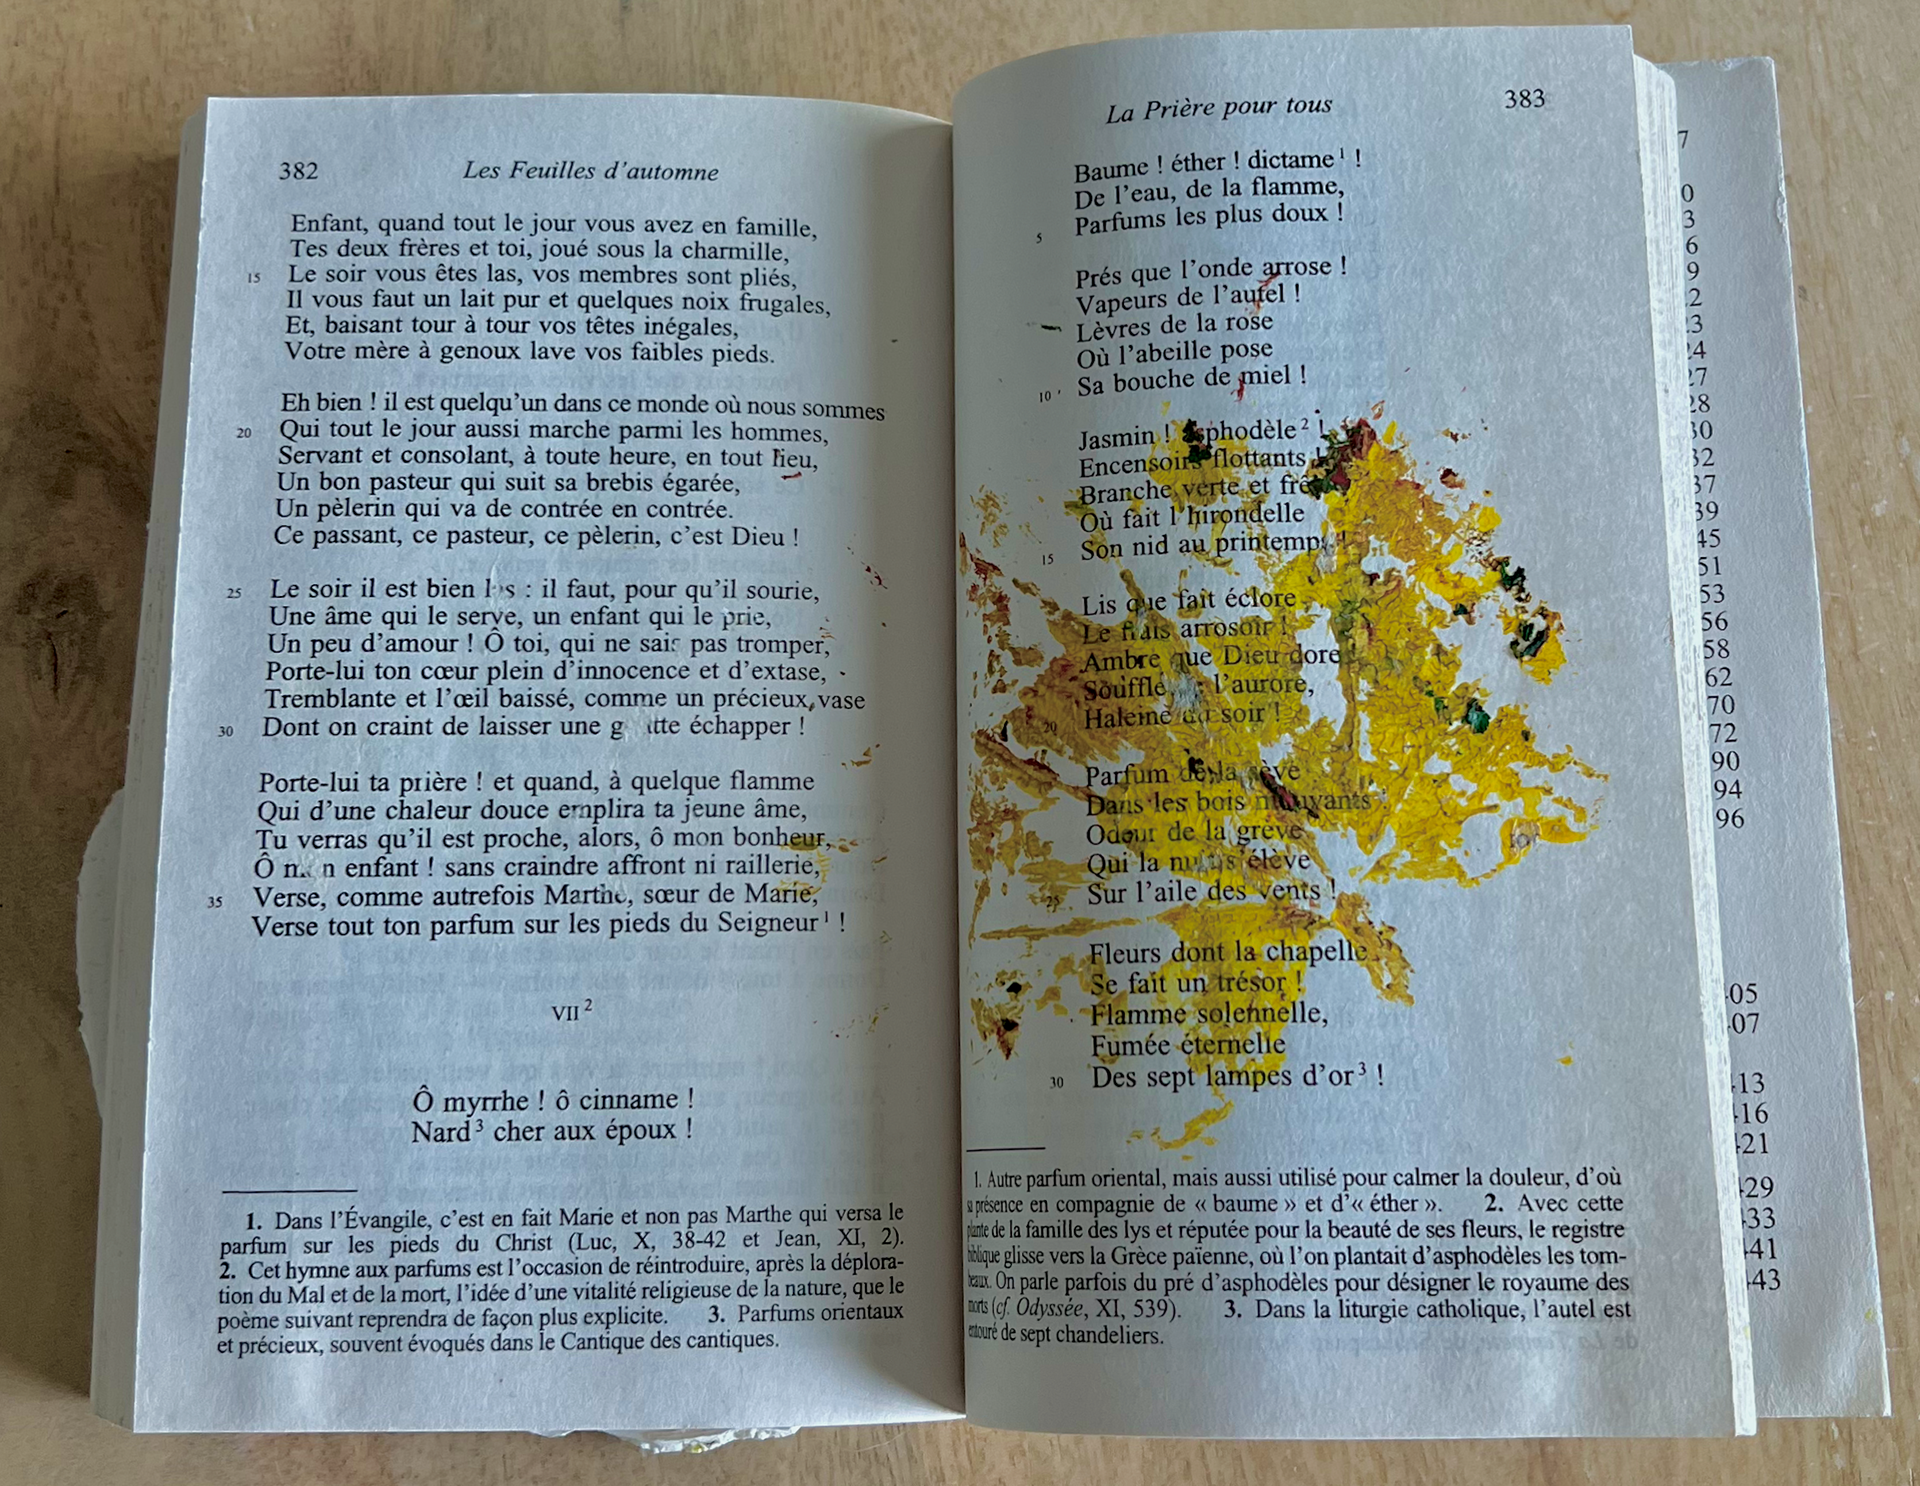 382
Les Feuilles d'automne
Enfant, quand tout le jour vous avez en famille,
Tes deux frères et toi, joué sous la charmille,
15 Le soir vous êtes las, vos membres sont pliés,
Il vous faut un lait pur et quelques noix frugales,
Et, baisant tour à tour vos têtes inégales,
Votre mère à genoux lave vos faibles pieds.
Eh bien ! il est quelqu'un dans ce monde où nous sommes
20 Qui tout le jour aussi marche parmi les hommes,
Servant et consolant, à toute heure, en tout lieu,
Un bon pasteur qui suit sa brebis égarée,
Un pèlerin qui va de contrée en contrée.
Ce passant, ce pasteur, ce pèlerin, c'est Dieu !
25 Le soir il est bien las : il faut, pour qu'il sourie,
Une âme qui le serve, un enfant qui le prie,
Un peu d'amour ! Ô toi, qui ne sais pas tromper,
Porte-lui ton cœur plein d'innocence et d'extase,
Tremblante et l'œil baissé, comme un précieux vase
30 Dont on craint de laisser une goutte échapper !
Porte-lui ta prière ! et quand, à quelque flamme
Qui d'une chaleur douce emplira ta jeune âme,
Tu verras qu'il est proche, alors, ô mon bonheur,
Ô mon enfant ! sans craindre affront ni raillerie,
35 Verse, comme autrefois Marthe, sœur de Marie,
Verse tout ton parfum sur les pieds du Seigneur 1 !
VII 2
Ô myrrhe ! ô cinname !
Nard 3 cher aux époux !
1. Dans l'Évangile, c'est en fait Marie et non pas Marthe qui versa le
parfum sur les pieds du Christ (Luc, X, 38-42 et Jean, XI, 2).
2. Cet hymne aux parfums est l'occasion de réintroduire, après la déplora-
tion du Mal et de la mort, l'idée d'une vitalité religieuse de la nature, que le
poème suivant reprendra de façon plus explicite. 3. Parfums orientaux
et précieux, souvent évoqués dans le Cantique des cantiques.
La Prière pour tous
383
Baume ! éther ! dictame 1 !
De l'eau, de la flamme,
5 Parfums les plus doux !
Prés que l'onde arrose !
Vapeurs de l'autel !
Lèvres de la rose
Où l'abeille pose
10 Sa bouche de miel !
Jasmin ! asphodèle 2 !
Encensoirs flottants !
Branche verte et frêle
Où fait l'hirondelle
15 Son nid au printemps !
Lis que fait éclore
Le frais arrosoir !
Ambre que Dieu dore
Souffle de l'aurore,
20 Haleine du soir !
Parfum de la sève
Dans les bois mouvants !
Odeur de la grève
Qui la nuit s'élève
25 Sur l'aile des vents !
Fleurs dont la chapelle
Se fait un trésor !
Flamme solennelle,
Fumée éternelle
30 Des sept lampes d'or 3 !
1. Autre parfum oriental, mais aussi utilisé pour calmer la douleur, d'où
sa présence en compagnie de « baume » et d'« éther ». 2. Avec cette
plante de la famille des lys et réputée pour la beauté de ses fleurs, le registre
biblique glisse vers la Grèce païenne, où l'on plantait d'asphodèles les tom-
beaux. On parle parfois du pré d'asphodèles pour désigner le royaume des
morts (cf. Odyssée, XI, 539). 3. Dans la liturgie catholique, l'autel est
entouré de sept chandeliers.